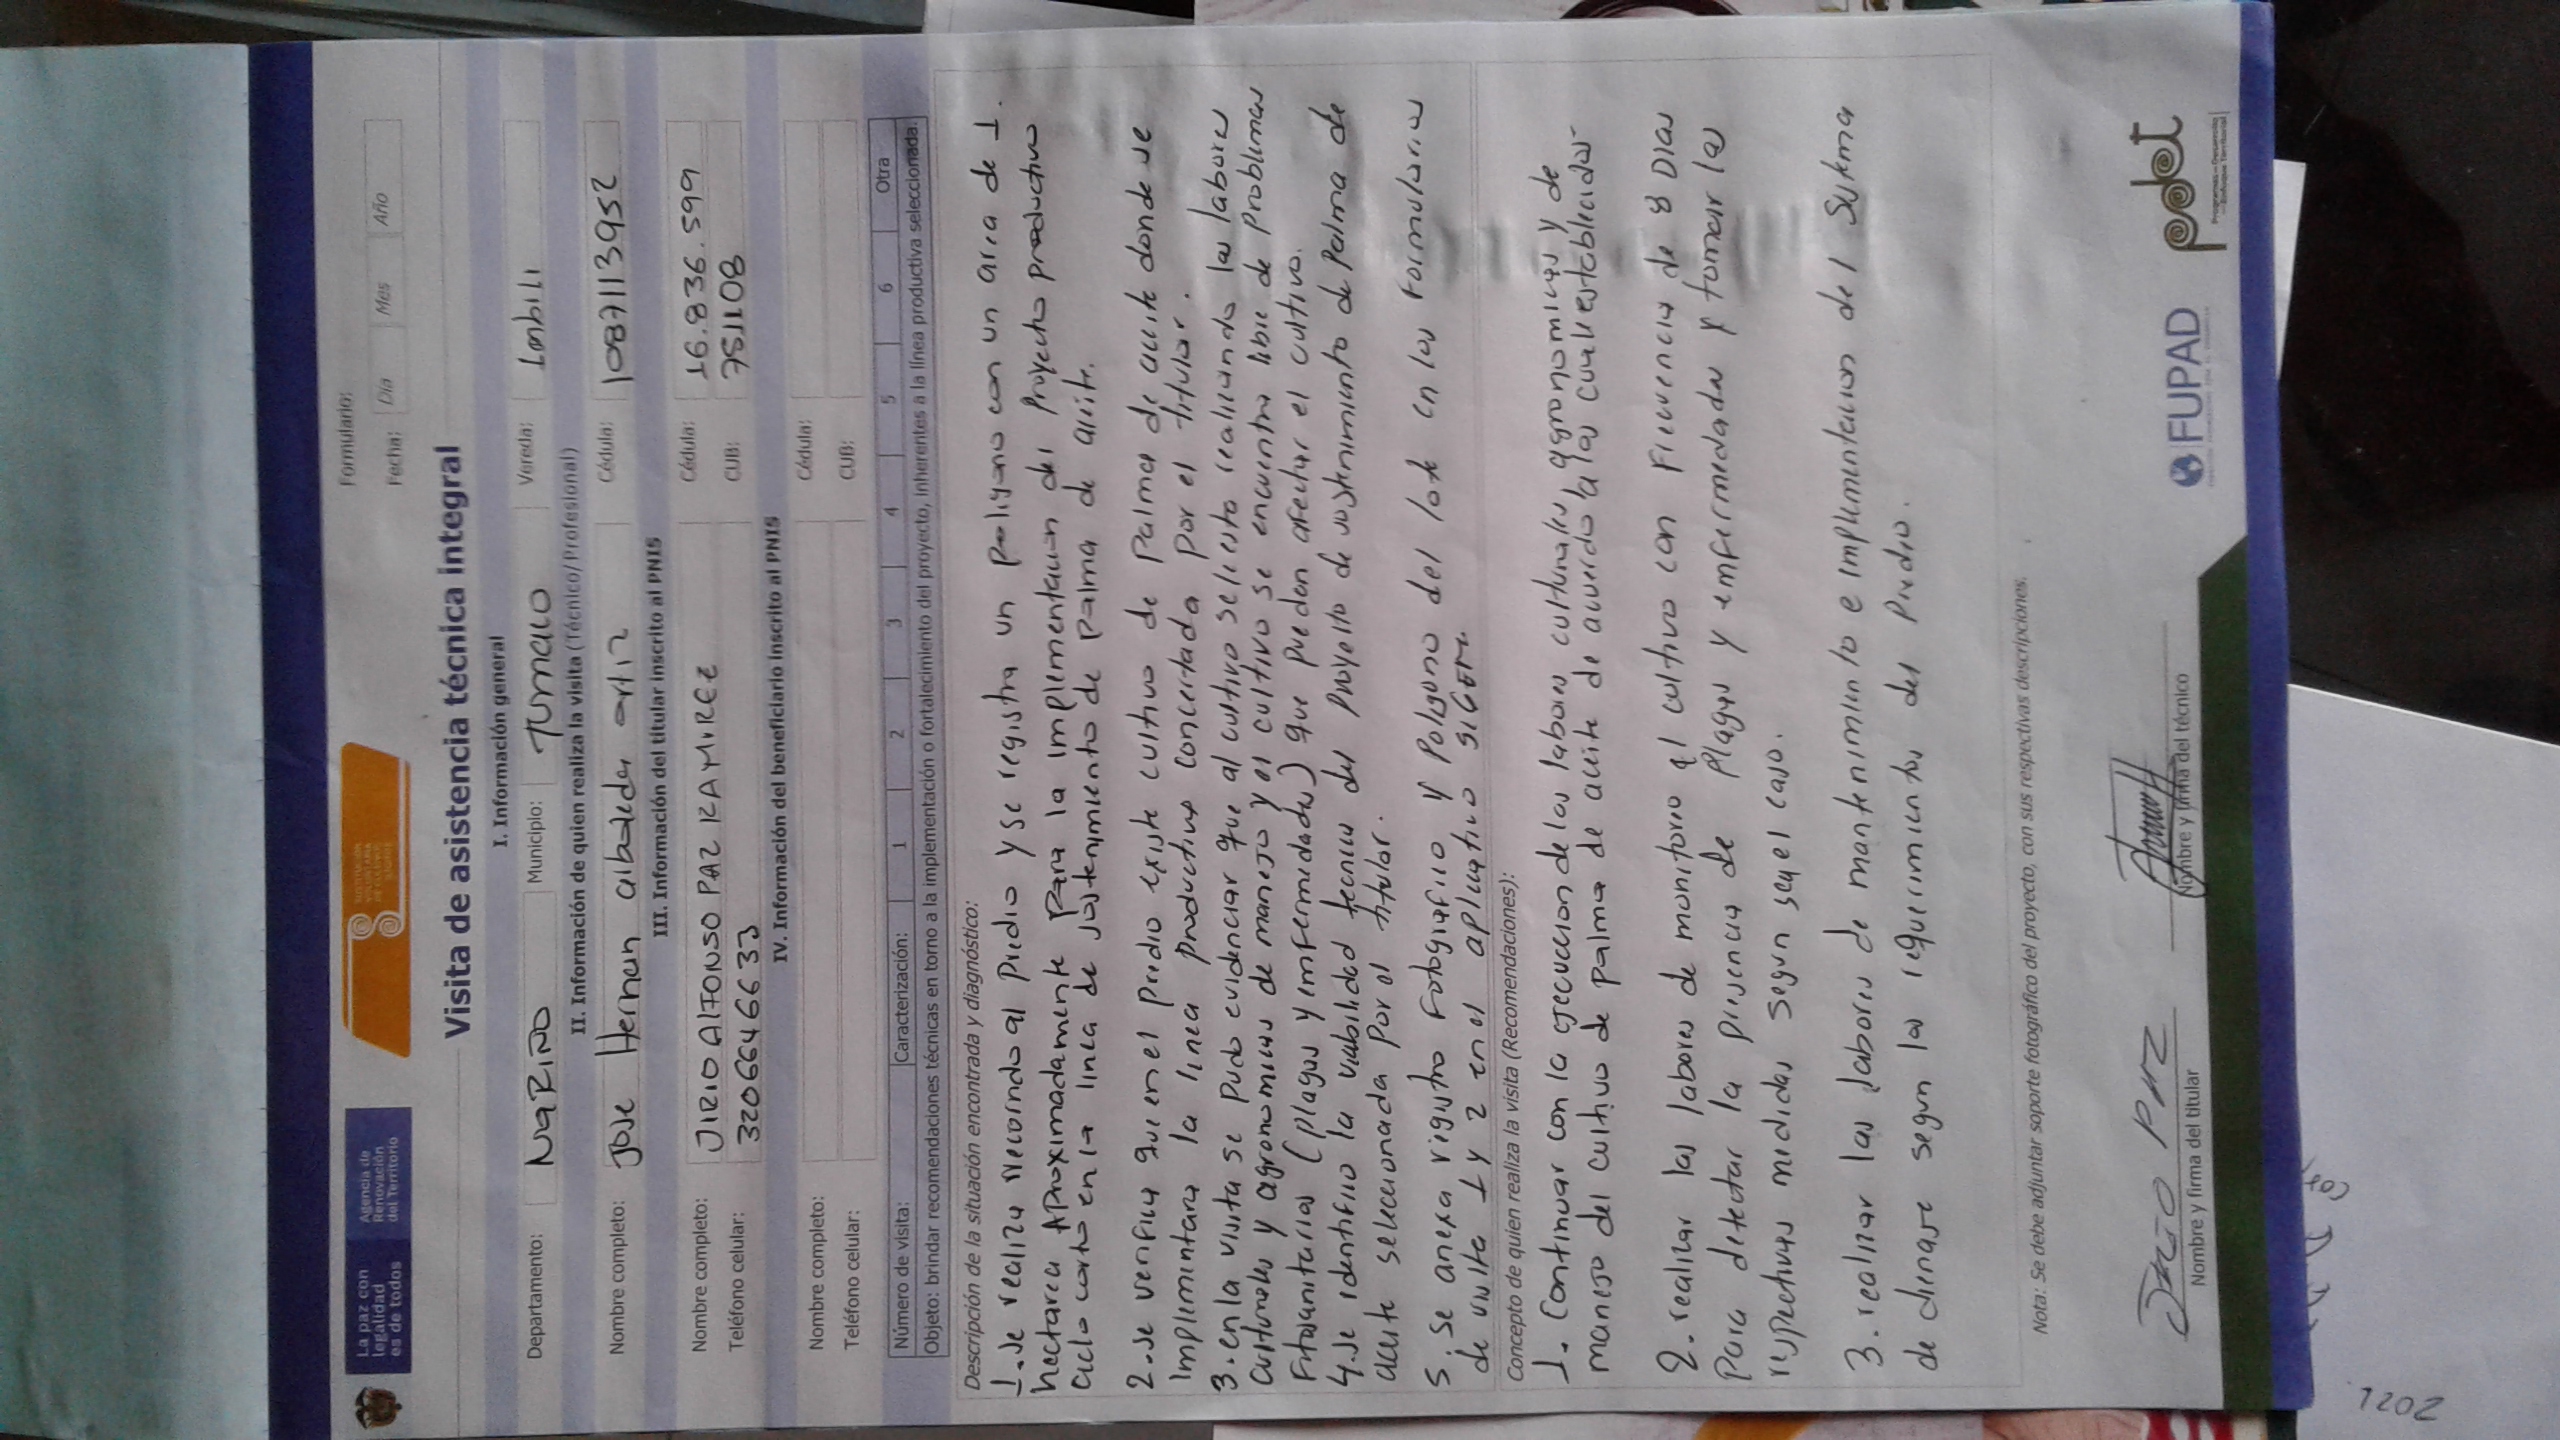 La paz con legalidad es de todos
Agencia de Renovación del Territorio
SUSTITUCIÓN VOLUNTARIA DE CULTIVOS ILÍCITOS
Formulario:
Fecha: Día Mes Año
Visita de asistencia técnica integral
I. Información general
Departamento: NaRIÑO Municipio: TUMaCO Vereda:
II. Información de quien realiza la visita (Técnico/Profesional)
Nombre completo: JOSE Hernan albaleda ortiz Cédula: 1087113952
III. Información del titular inscrito al PNIS
Nombre completo: JIRIO ALFONSO PAZ RAMIREZ Cédula: 16.836.599
Teléfono celular: 3206646633 CUB: 7511108
IV. Información del beneficiario inscrito al PNIS
Nombre completo: Cédula:
Teléfono celular: CUB:
Número de visita: Caracterización: 1 2 3 4 5 6 Otra
Objeto: brindar recomendaciones técnicas en torno a la implementación o fortalecimiento del proyecto, inherentes a la línea productiva seleccionada.
Descripción de la situación encontrada y diagnóstico:
1. se realiza recorrido al predio y se registra un poligono con un area de 1
hectarea Aproximadamente para la implementacion del proyecto productivo
ciclo corto en la linea de sostenimiento de palma de aceite.
2. se verifica que en el predio existe cultivo de palma de aceite donde se
implementara la linea productiva concertada por el titular.
3. en la visita se pudo evidenciar que al cultivo se le esta realizando las labores
culturales y agronomicas de manejo y el cultivo se encuentra libre de problemas
Fitosanitarios (plagas y enfermedades) que puedan afectar el cultivo.
4. se identifico la viabilidad tecnica del proyecto de sostenimiento de palma de
aceite seleccionada por el titular.
5. se anexa registro fotografico y poligono del lote en los formularios
de visita 1 y 2 en el aplicativo
Concepto de quien realiza la visita (Recomendaciones):
1. Continuar con la ejecuccion de las labores culturales, agronomicas y de
manejo del cultivo de palma de aceite de acuerdo a las cuales establecidas-
2. realizar las labores de monitoreo al cultivo con Frecuencia de 8 Dias
para detectar la presencia de plagas y enfermedades y tomar las
respectivas medidas segun sea el caso.
3. realizar las labores de mantenimiento e implementacion del sistema
de drenaje segun los requerimientos del predio.
Nota: Se debe adjuntar soporte fotográfico del proyecto, con sus respectivas descripciones.
PAZ
Nombre y firma del titular
Nombre y firma del técnico
FUPAD
pdet
Programas de Desarrollo con Enfoque Territorial
2021